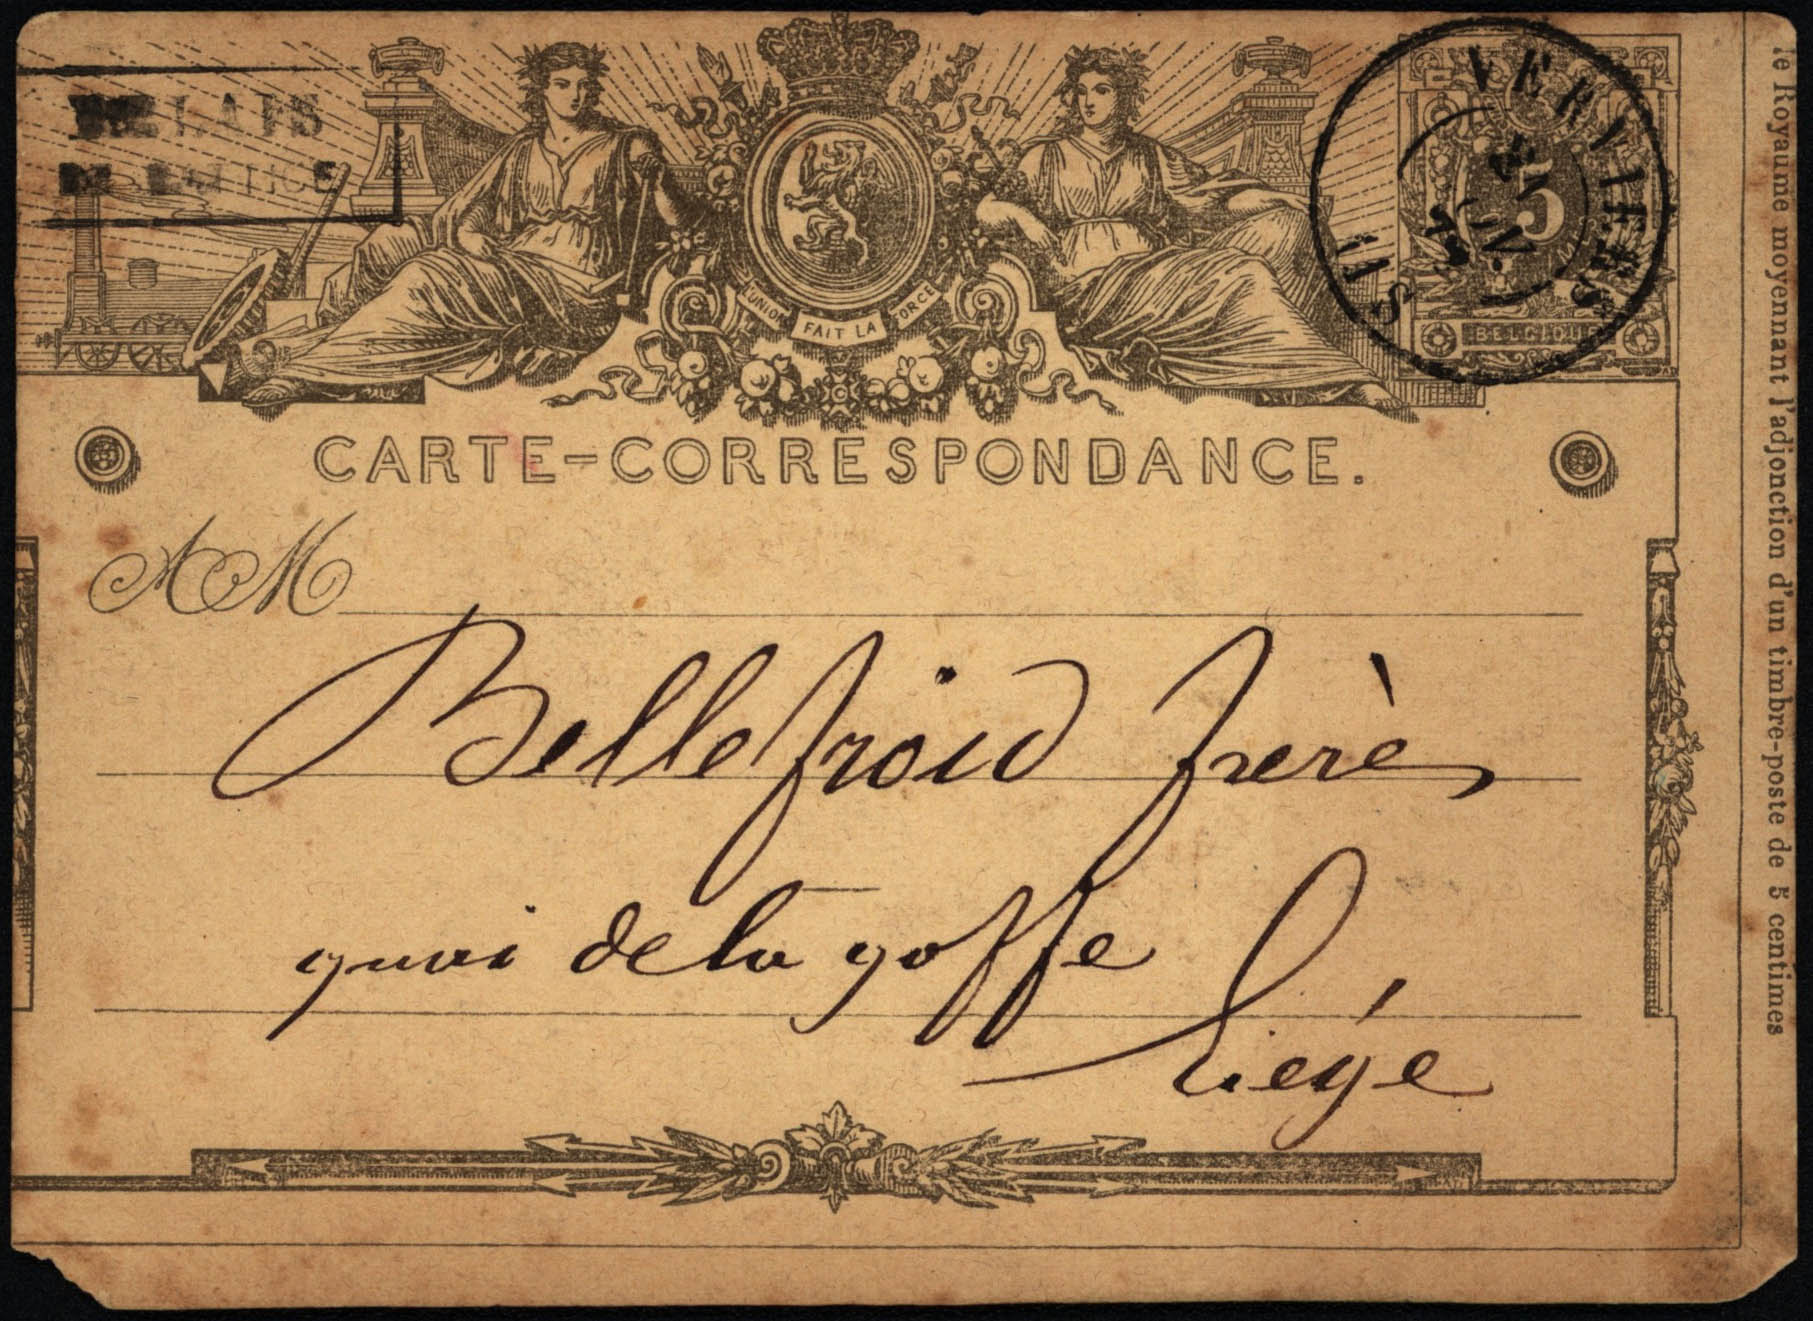 RELAIS
DE BATTICE
VERVIERS
5
NOV
BELGIQUE
L'UNION FAIT LA FORCE
CARTE-CORRESPONDANCE.
A M
Bellefroid frères
quai de la goffe
Liége
le Royaume moyennant l'adjonction d'un timbre-poste de 5 centimes